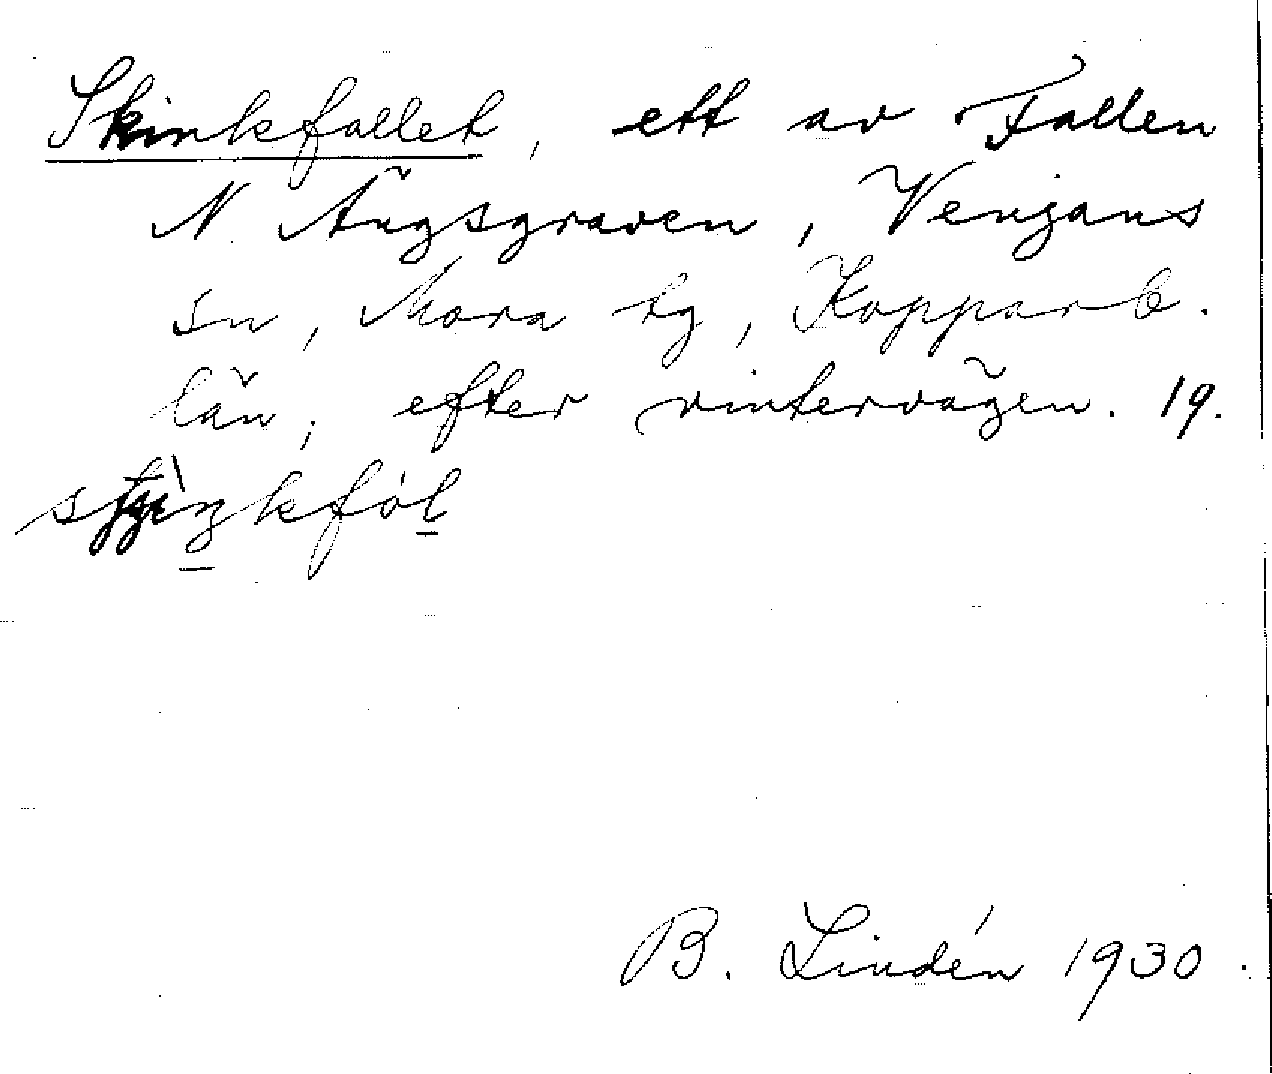 Skinkfallet, ett av Fallen
N. Ängsgraven, Venjans
sn, Mora tg, Kopparb.
län; efter vintervägen. 19.
B. Lindén 1930.